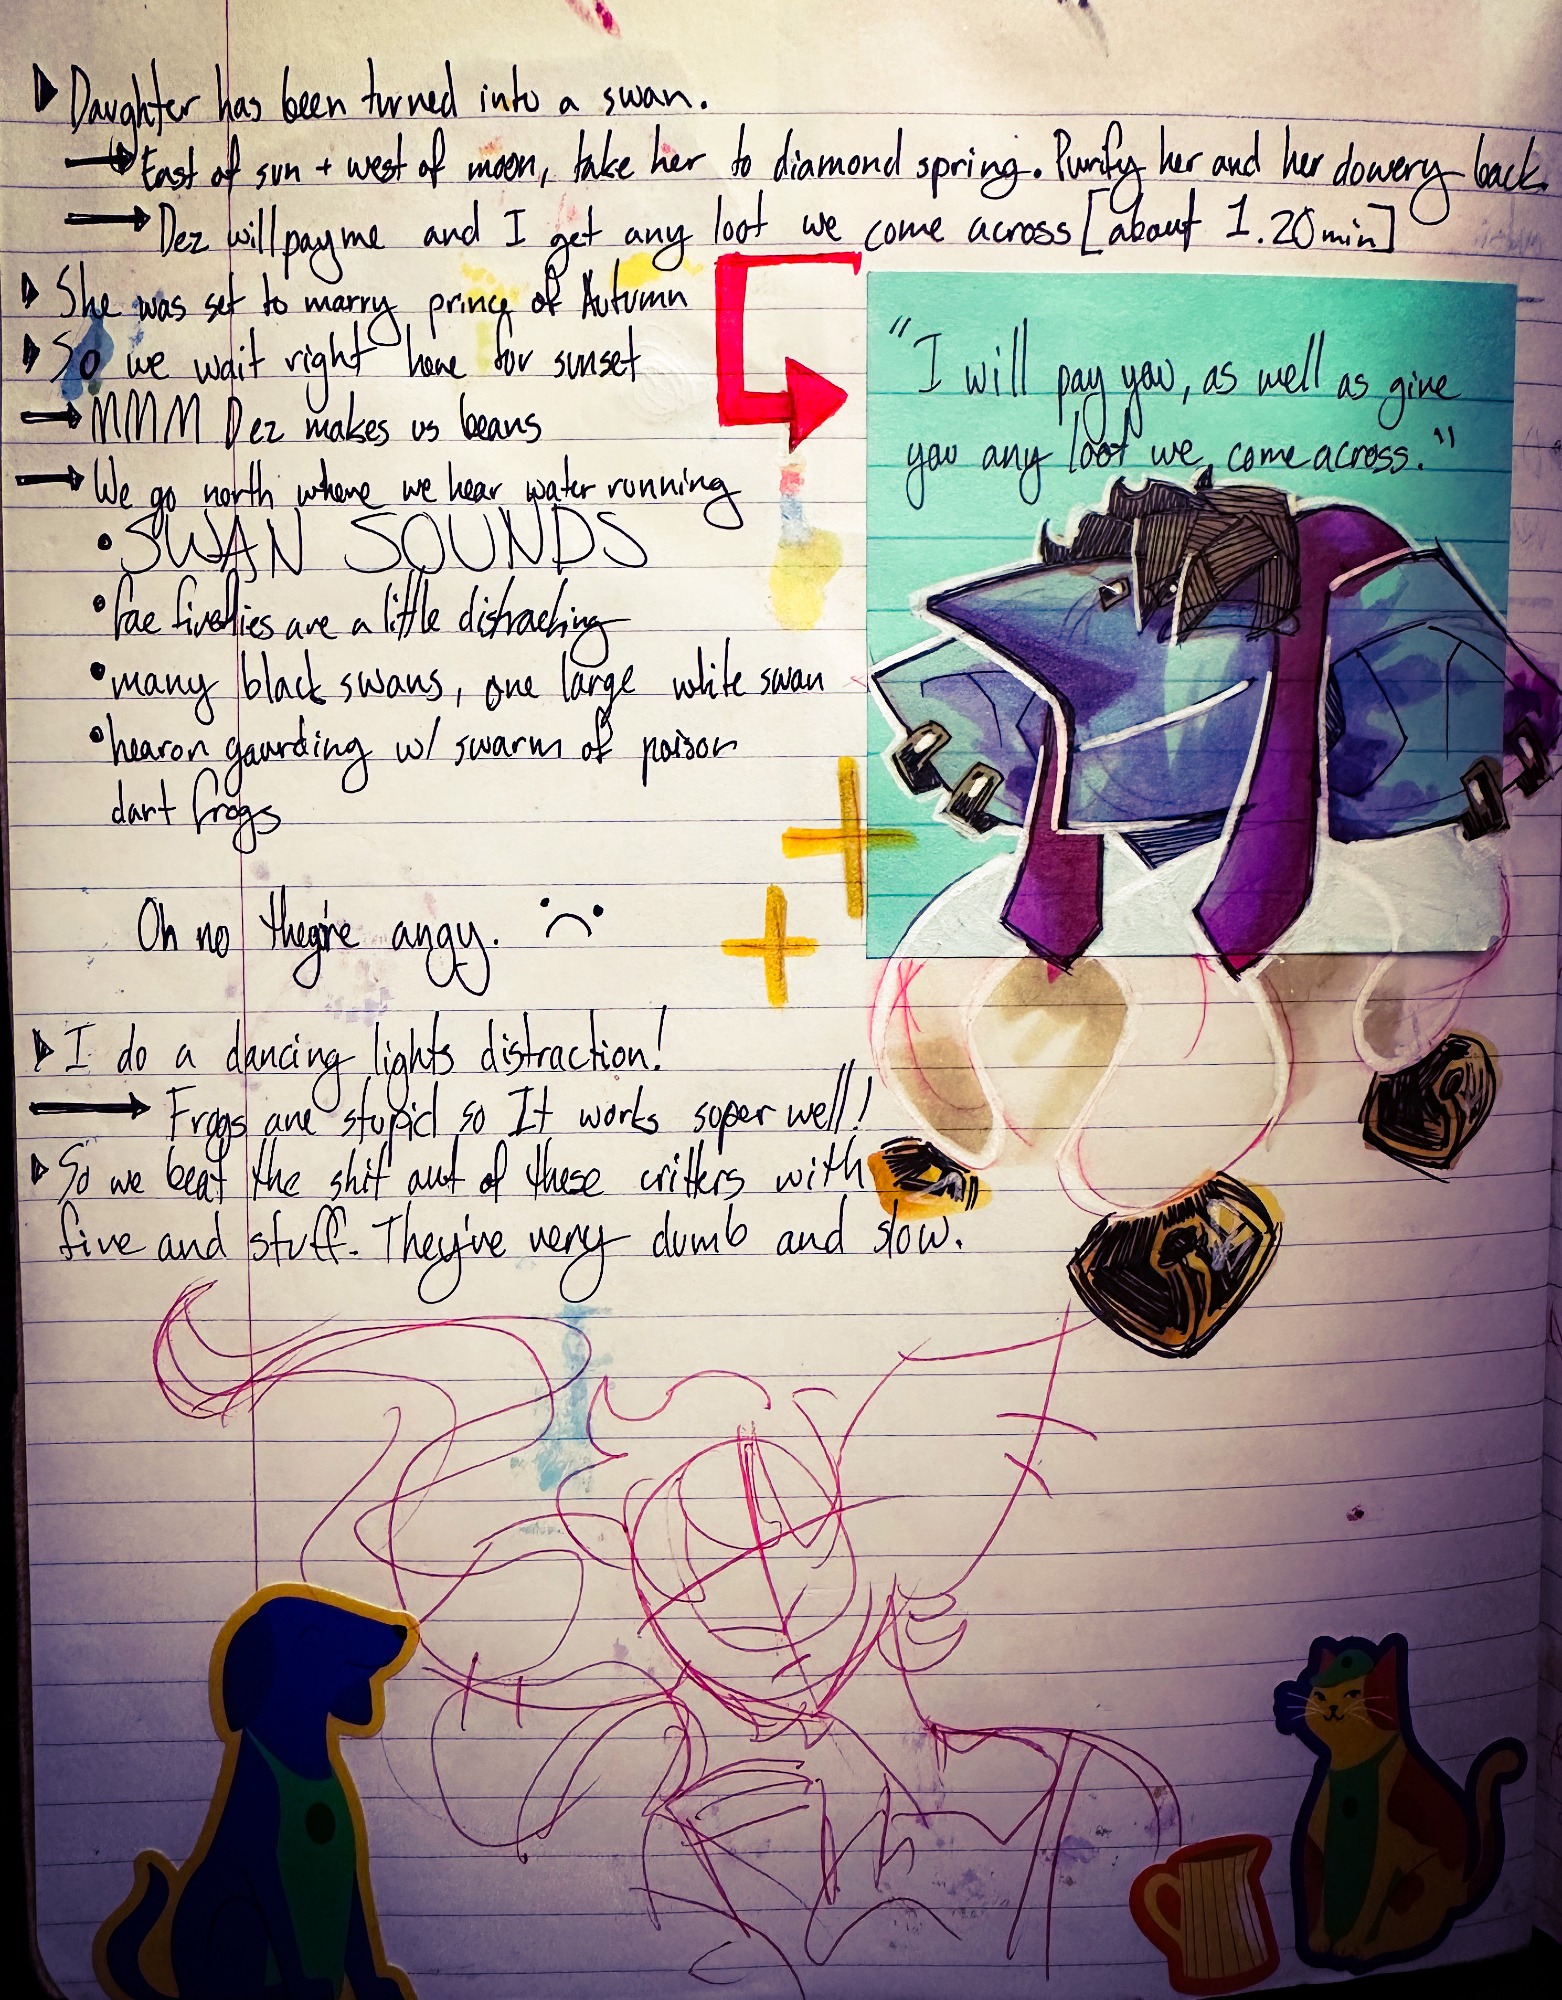 Daughter has been turned into a swan.
East of sun + west of moon, take her to diamond spring. Purify her and her dowery back.
Dez will pay me and I get any loot we come across [about 1.20min]
She was set to marry prince of Autumn
So we wait right here for sunset
MMM Dez makes us beans
We go north where we hear water running
SWAN SOUNDS
fae fireflies are a little distracting
many black swans, one large white swan
hearon gaurding w/ swarm of poison
dart frogs
"I will pay you, as well as give
you any loot we come across."
Oh no they're angy. :(
I do a dancing lights distraction!
Frogs are stupid so It works super well!
So we beat the shit out of these critters with
fire and stuff. They're very dumb and slow.